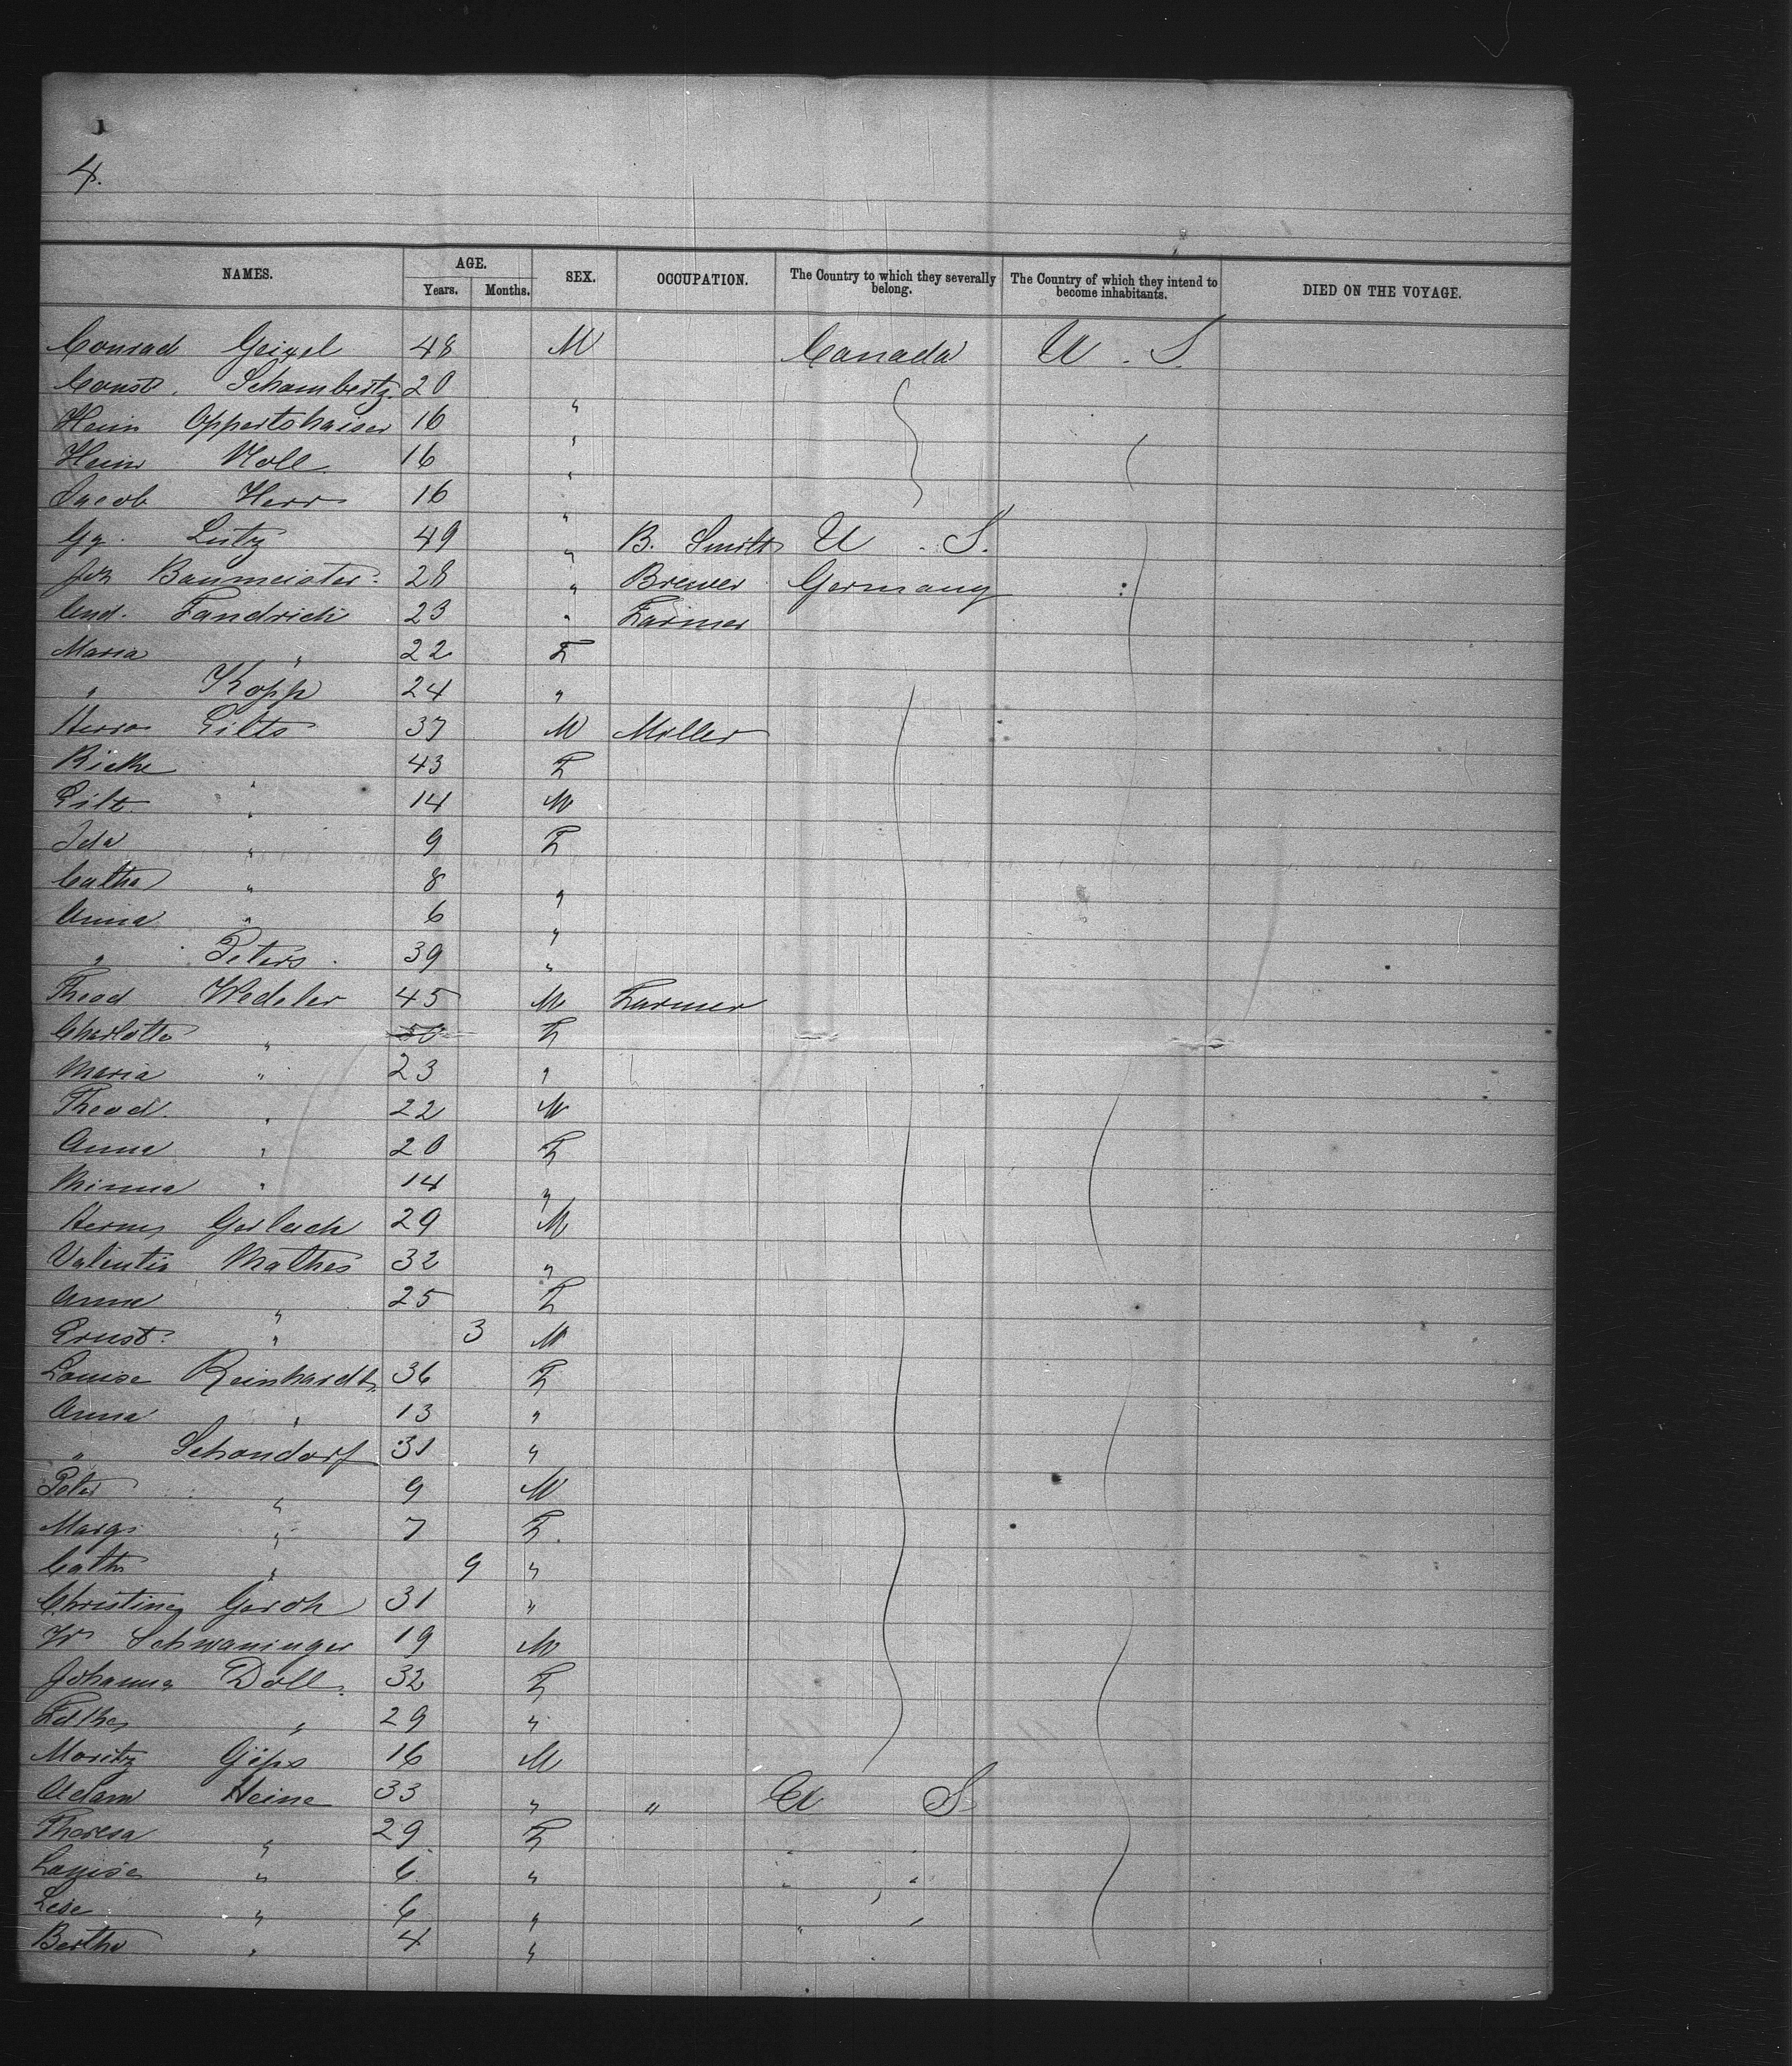 4.
NAMES. AGE. SEX. OCCUPATION. The Country to which they severally belong. The Country of which they intend to become inhabitants. DIED ON THE VOYAGE.
Years. Months.
Conrad Geigel 48 M Canada U. S.
Const. Schambertz. 20 "
Hein Oppertshaiser 16 "
Hein Noll 16 "
Jacob Herr 16 "
Gg. Lutz 49 " B. Smith U. S.
Joh Baumeister. 28 " Brewer Germany
And. Fandrich 23 " Farmer
Maria " 22 F
" Kopp 24 "
Harro Eilts 37 M Miller
Ricke " 43 F
Eilt " 14 M
Ida " 9 F
Catha " 8 "
Anna " 6 "
" Peters. 39 "
Theod Wedeler 45 M Farmer
Charlotte " F
Maria " 23 "
Theod. " 22 M
Anna " 20 F
Minna " 14 "
Herm Gerlach 29 M
Valentin Mathes 32 "
Anna " 25 F
Ernst. " 3 M
Louise Reinhardt 36 F
Anna " 13 "
" Schondorf 31 "
Peter " 9 M
Marg. " 7 F.
Cath " 9 "
Christine Gerdh 31 "
W Schwaninger 19 M
Johanna Doll. 32 F
" 29 "
Moritz Göps 16 M
Adam Heine 33 " " U S
Theresa " 29 F " "
Louise " 6 " " "
Lese " 6 " " "
Bertha " 4 "